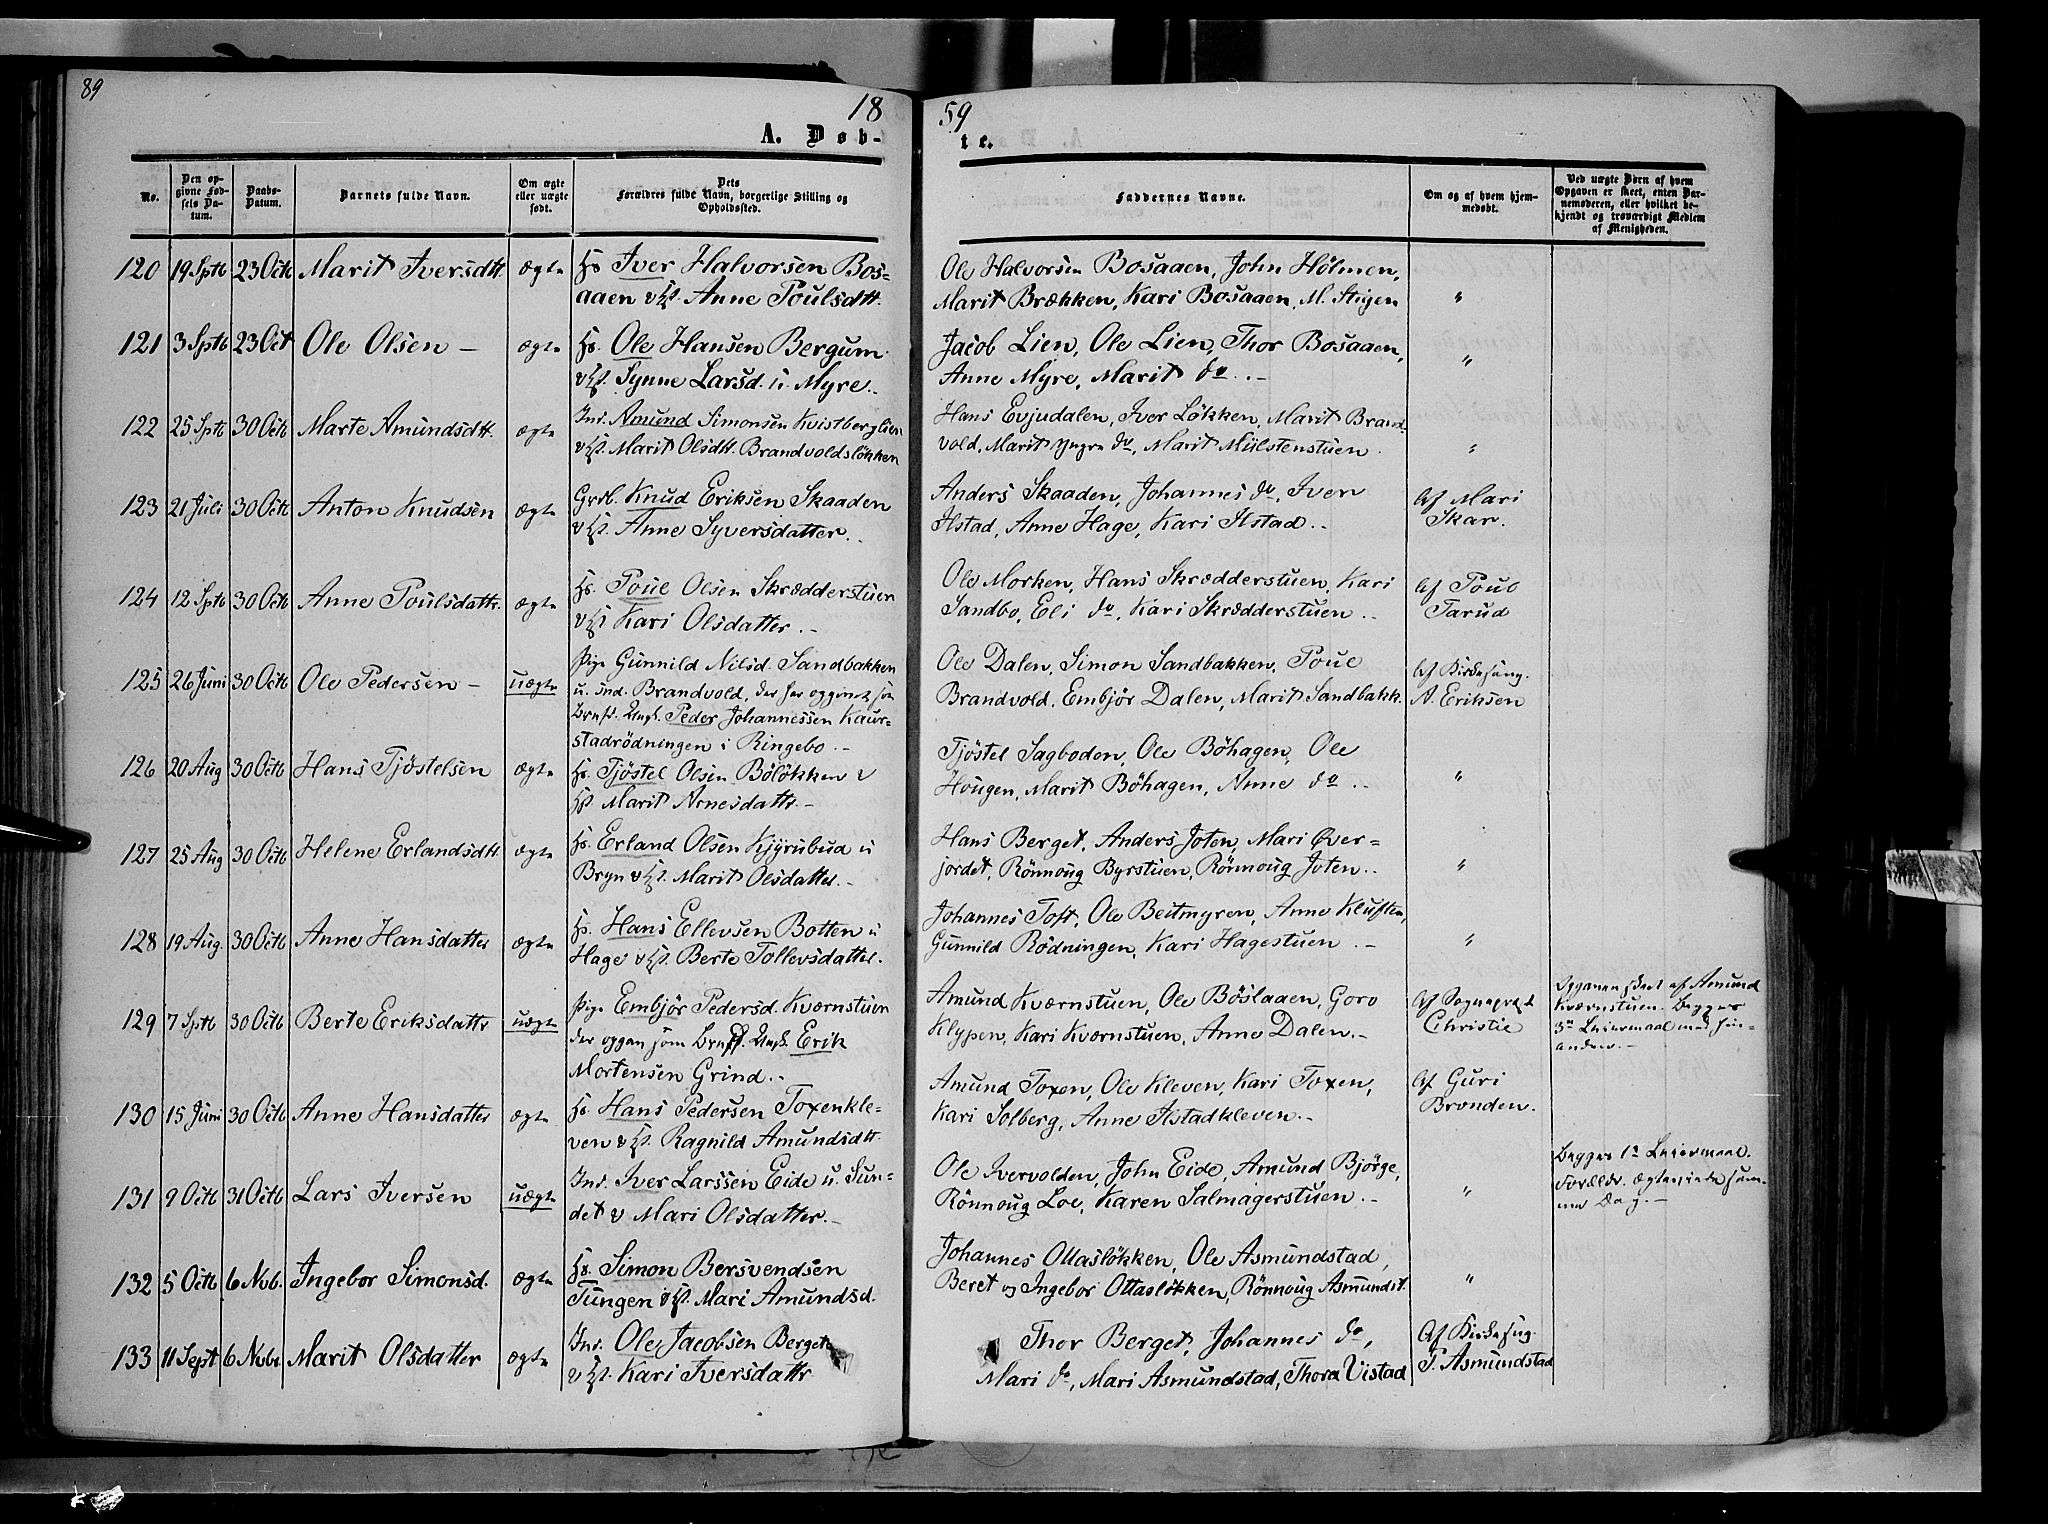 89
18
59
A. Døb-
te.
No.
Den opgivne Fødsels Datum.
Daabs-Datum.
Barnets fulde Navn.
Om ægte eller uægte født.
Dets Forældres fulde Navn, borgerlige Stilling og Opholdssted.
Faddernes Navne.
Om og af hvem hjemmedøbt.
Ved uægte Børn af hvem Opgaven er skeet, enten Barnemoderen, eller hvilket bekjendt og troværdigt Medlem af Menigheden.
120 19 Sptb 23 Octb Marit Iversdtt. ægte Hs Iver Halvorsen Bos-
aaen v Hst. Anne Poulsdtt.
Ole Halvorsen Bosaaen, John Hølmen,
Marit Brækken, Kari Bosaaen, M. Stigen "
121 3 Sptb 23 Oct Ole Olsen – ægte Hs. Ole Hansen Bergum
v Hst. Synne Larsd. u. Myre.
Jacob Lien, Ole Lien, Thor Bosaaen,
Anne Myre, Marit do. – "
122 25 Sptb 30 Octb Marte Amundsdtt. ægte Ind. Amund Simonsen Kvistberglien
v Hst. Marit Olsdtt. Brandvoldsløkken
Hans Evjudalen, Iver Løkken, Marit Brand-
vold, Marit Yngre do, Marit Mülstenstuen. "
123 21 Juli 30 Octb Anton Knudsen ægte Grdb. Knud Eriksen Skaaden
v Hst. Anne Syversdatter.
Anders Skaaden, Johannes do, Iver
Ilstad, Anne Hage, Kari Ilstad. –
Af Mari
Skar.
124 12 Sptb 30 Octb Anne Poulsdattr. ægte Hs. Poul Olsen Skrædderstuen
v Hst Kari Olsdatter. –
Ole Morken, Hans Skrædderstuen, Kari
Sandbo, Eli do, Kari Skrædderstuen. –
Af Poul
Tarud
125 26 Juni 30 Octb Ole Pedersen – uægte Pige Gunnild Nilsd. Sandbakken
u. Brandvold, der har opgivet som
Brnf. Ungk. Peder Johannessen Kaur-
stadrödningen i Ringebo. –
Ole Dalen, Simon Sandbakken, Poul
Brandvold, Embjør Dalen, Marit Sandbakk.
Af Kirkesang.
A. Eriksen
126 20 Aug 30 Octb Hans Tjöstelsen ægte Hs. Tjöstel Olsen Böløkken v
Hst Marit Arnesdattr. –
Tjöstel Sagboden, Ole Böhagen, Ole
Hougen, Marit Böhagen, Anne do. – "
127 25 Aug 30 Octb Helene Erlandsdtt. ægte Hs. Erland Olsen Kjyrubud u
Bryn v Hst. Marit Olsdatter. –
Hans Berget, Anders Joten, Mari Øver-
jordet, Rönnoug Byrstuen, Rönnoug Joten. – "
128 19 Aug. 30 Octb Anne Hansdatter ægte Hs. Hans Ellevsen Botten u
Hage v Hst. Berte Tollevsdatter.
Johannes Toft, Ole Beitmyren, Anne Kluften,
Gunnild Rödningen, Kari Hagestuen. – "
129 7 Sptb 30 Octb Berte Eriksdattr uægte Pige Embjör Pedersd. Kværnstuen
der opgav som Brnf. Ungk. Erik
Mortensen Grind. –
Amund Kværnstuen, Ole Böslaaen, Goro
Klypen, Kari Kværnstuen, Anne Dalen. –
Af Sognepræst
Christie
Opgaven skeet af Amund
Kværnstuen. Begges
3die Leiermaal med hin-
anden. –
130 15 Juni 30 Octb Anne Hansdatter ægte Hs. Hans Pedersen Toxenkle-
ven v Hst. Ragnild Amundsdtt.
Amund Toxen, Ole Kleven, Kari Toxen,
Kari Solberg, Anne Ilstadkleven. –
Af Guri
Brenden.
131 9 Octb 31 Octb Lars Iversen uægte Ind. Iver Larssen Eide u. Sun-
det v Mari Olsdatter. –
Ole Ivervolden, John Eide, Amund Bjørge,
Rönnoug Loe, Karen Salmagerstuen. – "
Begges 1ste Leiermaal.
Foreldr. ægteviede sam-
me Dag. –
132 5 Octb 6 Nvb. Ingebor Simonsd. ægte Hs. Simon Bersvendsen
Tungen v Hst. Mari Amundsd.
Johannes Ottasløkken, Ole Asmundstad,
Beret og Ingebor Ottasløkken, Rönnoug Asmundst. "
133 11 Sept 6 Nvbr Marit Olsdatter ægte Ind. Ole Jacobsen Berget
v Hst. Kari Iversdattr.
Thor Berget, Johannes do,
Mari do, Mari Asmundstad, Thora Vistad
Af Kirkesug.
P. Asmundstad